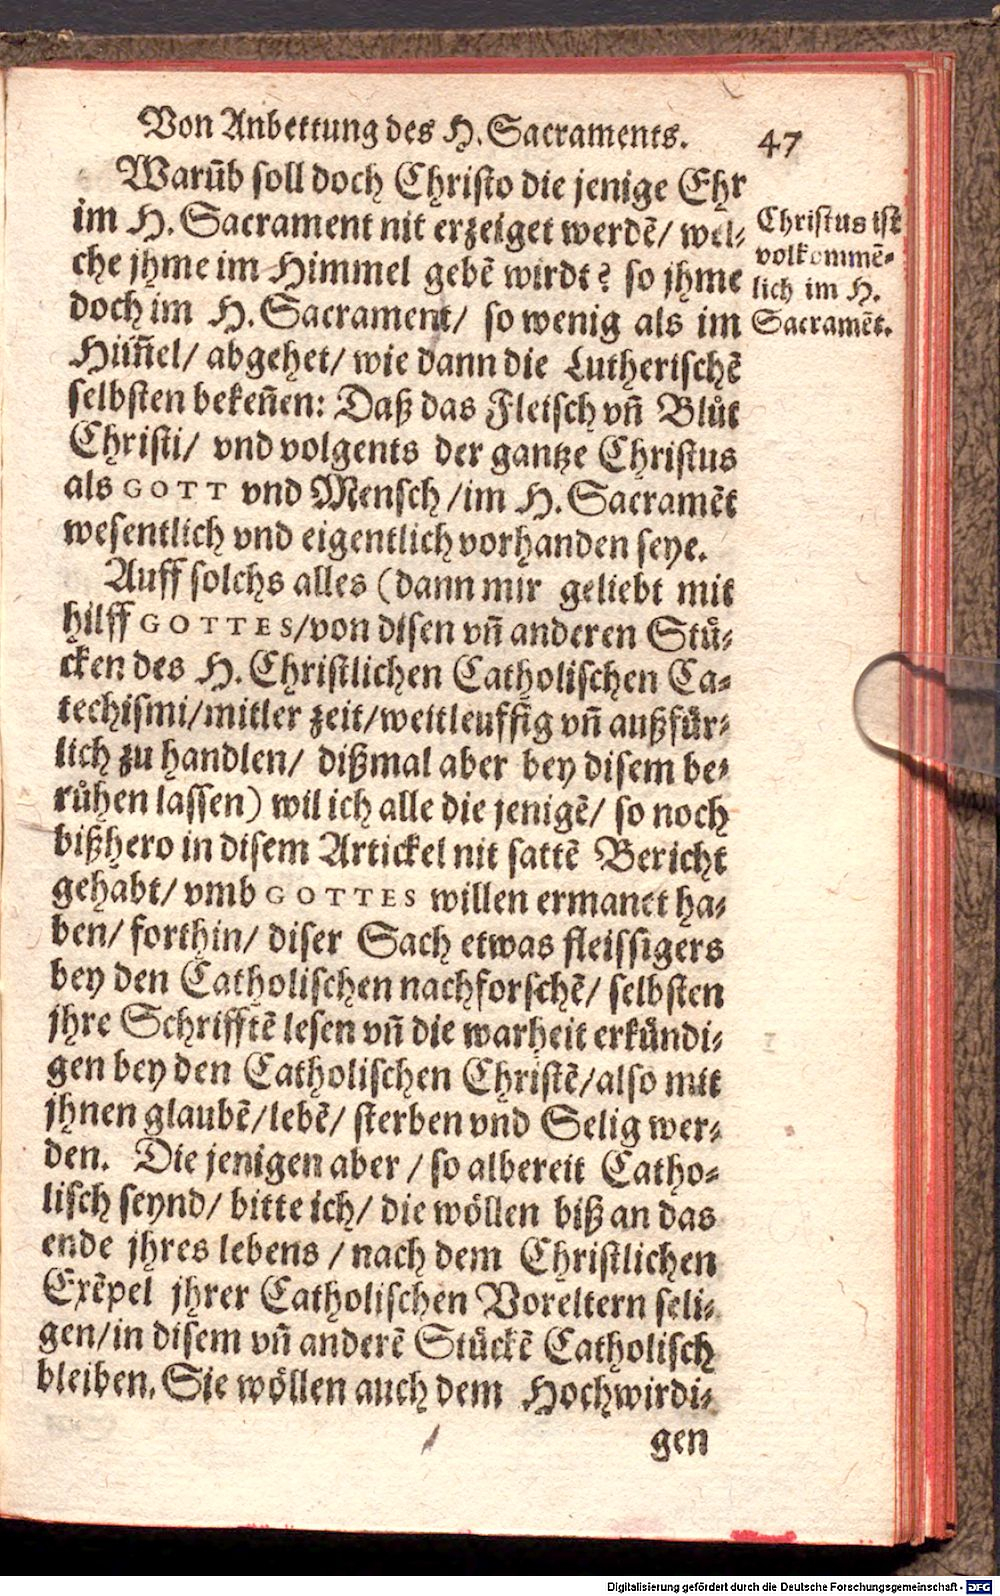 Von Anbettung des H. Sacraments. 47
Warũb soll doch Christo die jenige Ehr
im H. Sacrament nit erzeiget werdẽ/ wel⸗
che jhme im Himmel gebẽ wirdt? so jhme
doch im H. Sacrament/ so wenig als im
Him̃el/ abgehet/ wie dann die Lutherischẽ
selbsten bekeñen: Daß das Fleisch vñ Blůt
Christi/ vnd volgents der gantze Christus
als GOTT vnd Mensch/ im H. Sacramẽt
wesentlich vnd eigentlich vorhanden seye.
Christus ist
volkommẽ⸗
lich im H.
Sacramẽt.
Auff solchs alles (dann mir geliebt mit
hilff GOTTES/von disen vñ anderen Stů⸗
cken des H. Christlichen Catholischen Ca⸗
techismi/mitler zeit/weitleuffig vñ außfůr⸗
lich zu handlen/ dißmal aber bey disem be⸗
růhen lassen) wil ich alle die jenigẽ/ so noch
bißhero in disem Artickel nit sattẽ Bericht
gehabt/ vmb GOTTES willen ermanet ha⸗
ben/ forthin/ diser Sach etwas fleissigers
bey den Catholischen nachforschẽ/ selbsten
jhre Schrifftẽ lesen vñ die warheit erkůndi⸗
gen bey den Catholischen Christẽ/also mit
jhnen glaubẽ/lebẽ/ sterben vnd Selig wer⸗
den. Die jenigen aber / so albereit Catho⸗
lisch seynd/ bitte ich/ die wöllen biß an das
ende jhres lebens / nach dem Christlichen
Exẽpel jhrer Catholischen Voreltern seli⸗
gen/in disem vñ anderẽ Stůckẽ Catholisch
bleiben. Sie wöllen auch dem Hochwirdi⸗
gen
Digitalisierung gefördert durch die Deutsche Forschungsgemeinschaft - DFG